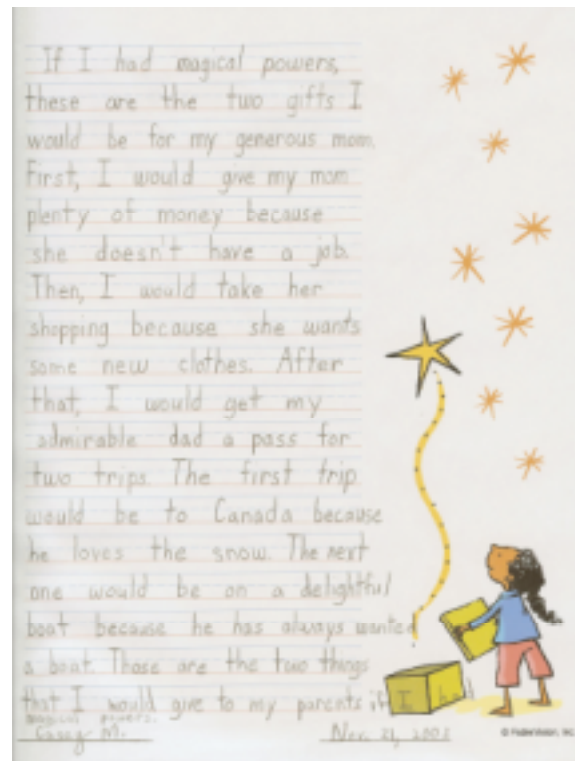 If I had magical powers,
these are the two gifts I
would be for my generous mom.
First, I would give my mom
plenty of money because
she doesn't have a job.
Then, I would take her
shopping because she wants
some new clothes. After
that, I would get my
admirable dad a pass for
two trips. The first trip
would be to Canada because
he loves the snow. The next
one would be on a delightful
boat because he has always wanted
a boat. Those are the two things
that I would give to my parents if I had
magical powers.
Casey M.
Nov. 21,
©